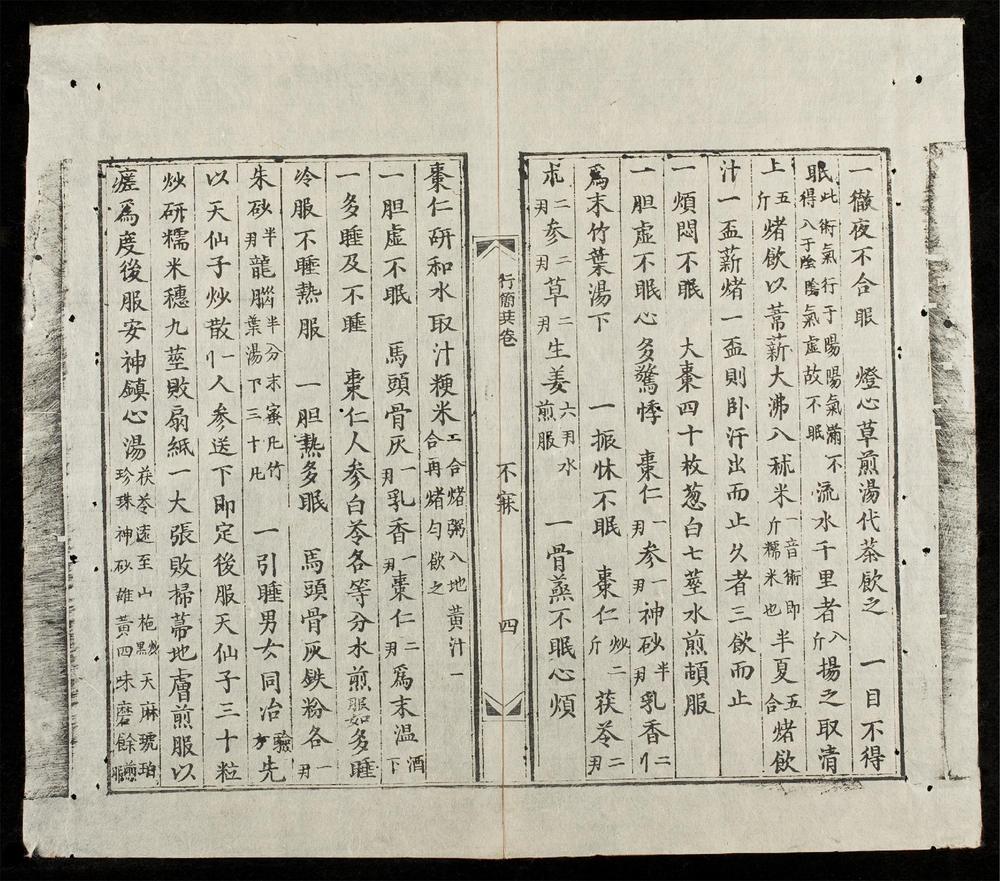 一徹夜不合眠 燈心草煎湯代茶飲之 一目不得
眠此術氣行于陽陽氣滿不得入于陰陰氣虛故不眠 流水千里者八斤揚之取清
上五斤煮飲以葦薪大沸入秫米一斤音術即糯米也半夏五合煮飲
汁一盃薪煮一盃則卧汗出而止久者三飲而止
一煩悶不眠 大棗四十枚葱白七莖水煎頓服
一胆虛不眠心多驚悸 棗仁一刄參一刄神砂半刄乳香二刂
爲末竹葉湯下 一振怵不眠 棗仁炒二斤茯苓二刄
朮二刄參二刄草二刄生姜六刄水煎服 一骨蒸不眠心煩
行簡英卷 不寐 四
棗仁研和水取汁粳米二合煮粥入地黃汁一合再煮勻飲之
一胆虛不眠 馬頭骨灰一刄乳香一刄棗仁二刄爲末温酒下
一多睡及不睡 棗仁人參白苓各等分水煎服如多睡
冷服不睡熱服 一胆熱多眠 馬頭骨灰鉄粉各一刄
朱砂半刄龍腦半分末蜜凡竹葉湯下三十凡 一引睡男女同治驗方先
以天仙子炒散一刂人參送下即定後服天仙子三十粒
炒研糯米穗九莖敗扇紙一大張敗掃帚地膚煎服以
瘥爲度後服安神鎮心湯茯苓遠至山梔炒黑天麻琥珀珍珠神砂雄黃四味磨餘煎服